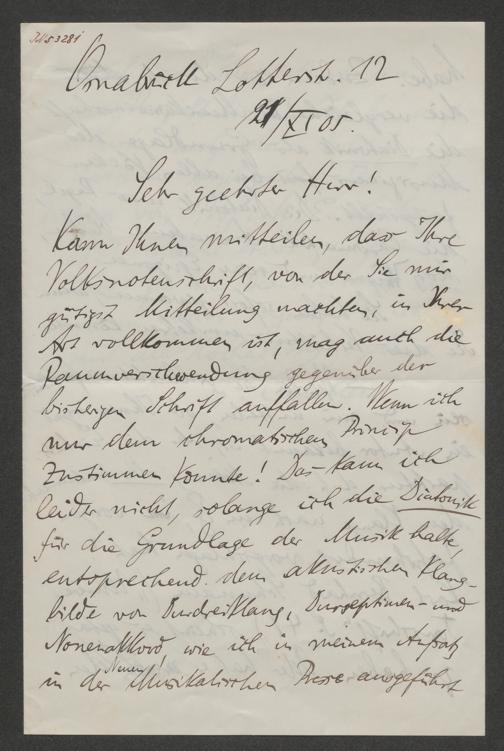 Osnabrück Lotterstr. 12
21/XI 05.
Sehr geehrter Herr!
Kann Ihnen mitteilen, dass Ihre
Volksnotenschrift, von der Sie mir
gütigst Mitteilung machten, in Ihrer
Art vollkommen ist, mag auch die
Raumverschwendung gegenüber der
bisherigen Schrift auffallen. Wenn ich
nur dem chromatischen Princip
zustimmen könnte! Das kann ich
leider nicht, solange ich die Diatonik
für die Grundlage der Musik halte,
entsprechend dem akustischen Klang-
bilde von Durdreiklang, Durseptimen- und
Nonenakkord, wie ich in meinem Aufsatz
in der Neuen Musikalischen Presse ausgeführt